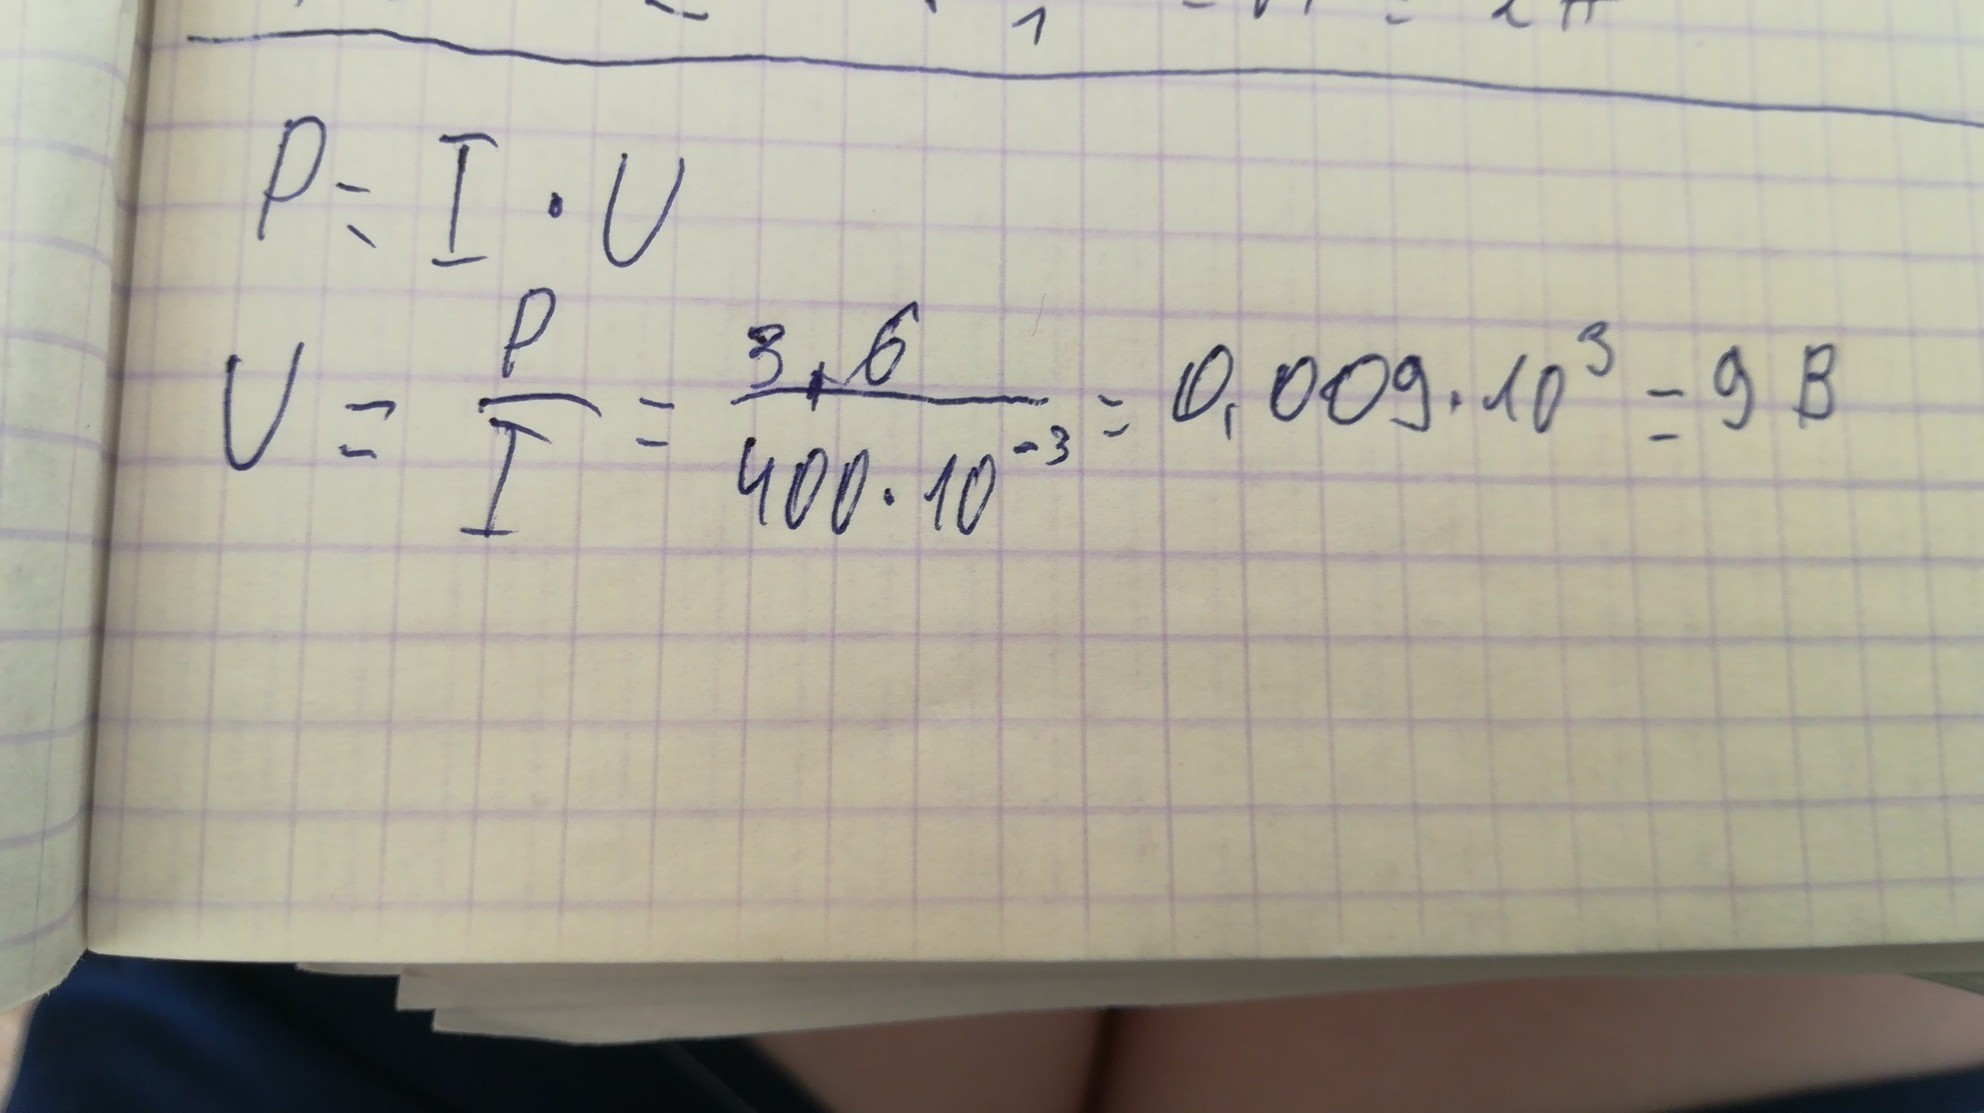 P = I · U
U = P/I = 3,6/400·10⁻³ = 0,009·10³ = 9 В